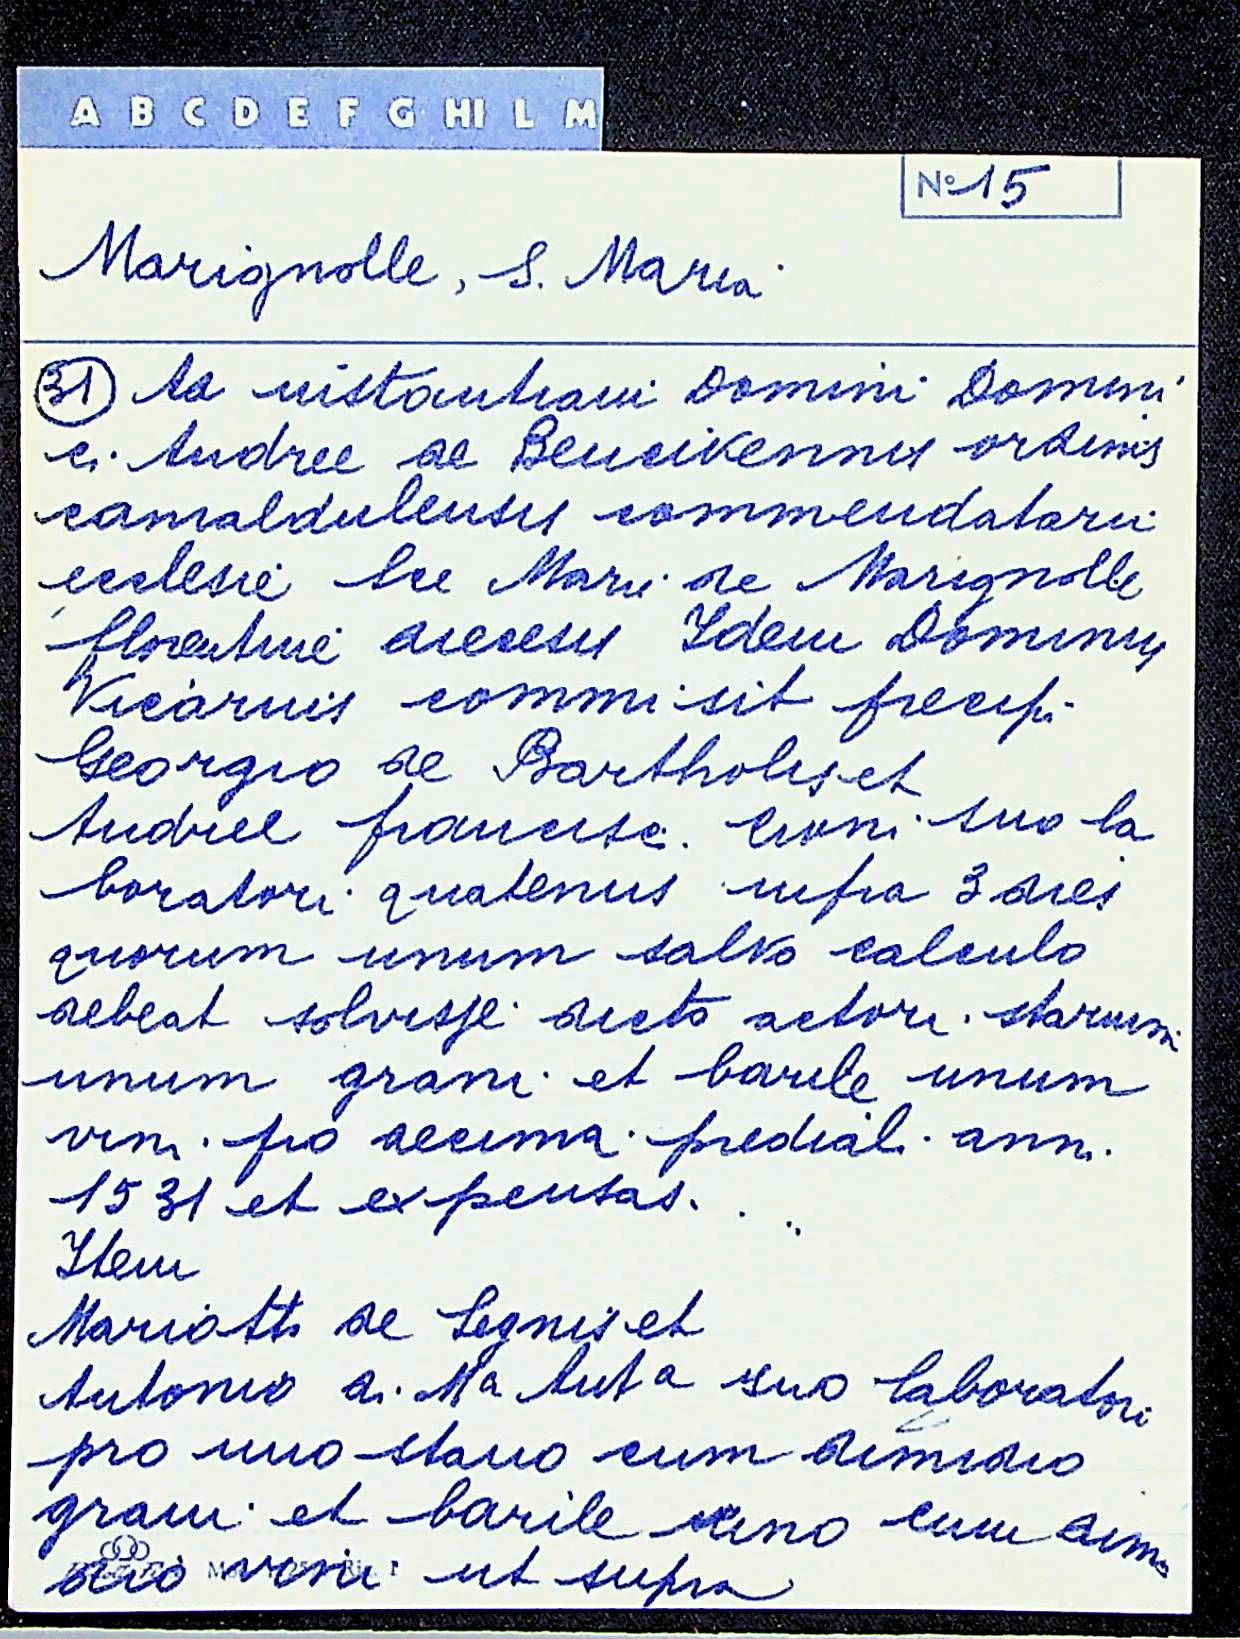 A B C D E F G HI L M
N° 15
Marignolle, S. Maria
31 Ad instantiam Domini Domini
ci Andree de Bencivennis ordinis
camaldulensis commendatarii
ecclesie See Marie de Marignolle
florentine diecesis Idem Dominus
Vicarius commisit precipi
Georgio de Bartholis et
Andree francisc. Cioni suo la
boratori quatenus infra 3 dies
quorum unum salvo calculo
debeat solvisse dicto actori starium
unum grani et barile unum
vini pro decima predial. anni
1531 et expensas. . .
Item
Mariotti de Segnis et
Antonio di Ma Anta suo laboratori
pro uno stario cum dimidio
grani et barile uno cum dimi
dio vini ut supra